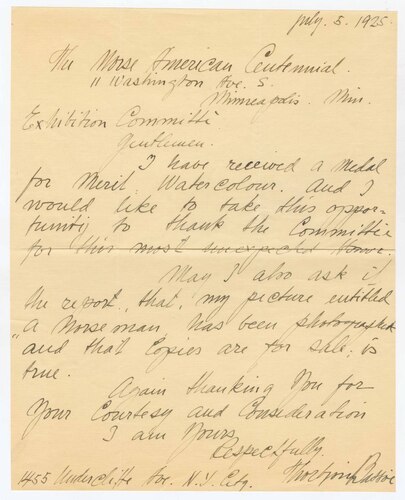 July. 5. 1925
The Norse American Centennial.
11 Washington Ave. S.
Minneapolis. Min.
Exhibition Committe
Gentlemen.
I have received a medal
for Merit. Watercolour. And I
would like to take this oppor-
tunity to thank the Committe
for this most unexpected honor.
May I also ask if
the report, that, my picture entitled
"A Norseman, has been photographed
and that Copies are for sale, is
true.
Again thanking You for
Your Courtesy and Consideration
I am Yours
Respectfully.
1455 Undercliffe Ave. N.Y. City.